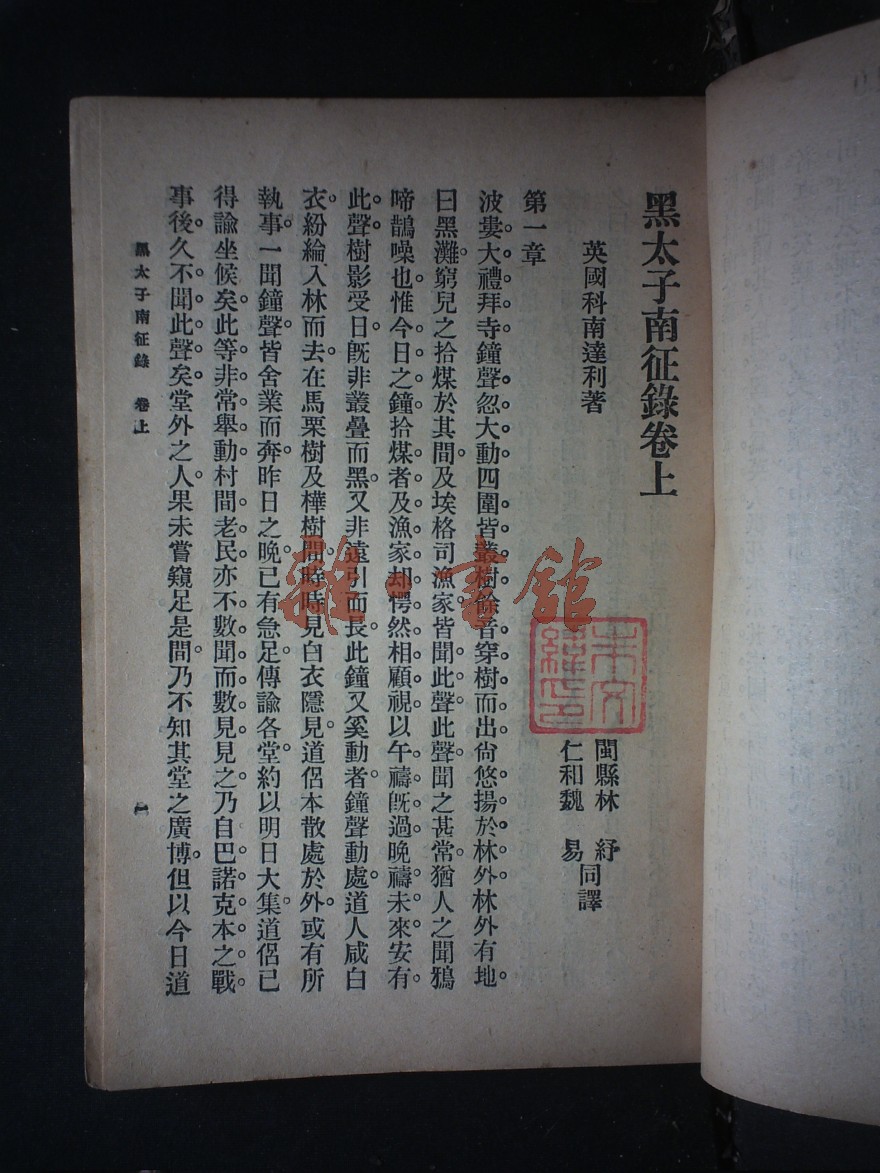 黑太子南征錄卷上
英國科南達利著
閩縣林　紓
仁和魏　易
同譯
第一章
波婁。大禮拜寺鐘聲忽大動。四圍皆叢樹。餘音穿樹而出。尙悠揚於林外。林外有地。
曰黑灘。窮兒之拾煤於其間。及埃格司漁家。皆聞此聲。此聲聞之甚常。猶人之聞鴉
啼鵲噪也。惟今日之鐘。拾煤者及漁家。却愕然相顧視。以午禱旣過。晚禱未來。安有
此聲。樹影受日。旣非叢疊而黑。又非遠引而長。此鐘又奚動者。鐘聲動處。道人咸白
衣。紛綸入林而去。在馬栗樹及樺樹間。時時見白衣隱見。道侶本散處於外。或有所
執事。一聞鐘聲。皆舍業而奔。昨日之晚。已有急足傳諭各堂。約以明日大集。道侶已
得諭坐候矣。此等非常舉動。村間老民。亦不數聞而數見。見之乃自巴諾克本之戰
事後。久不聞此聲矣。堂外之人。果未嘗窺足是間。乃不知其堂之廣博。但以今日道
黑太子南征錄　卷上
一
雜·書館